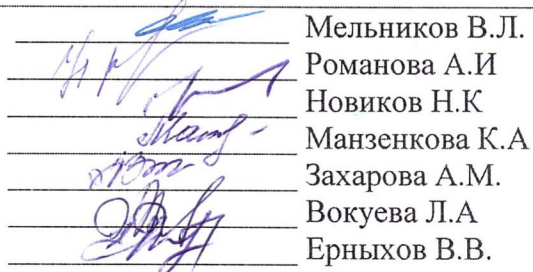 Мельников В.Л.
Романова А.И
Новиков Н.К
Манзенкова К.А
Захарова А.М.
Вокуева Л.А
Ерныхов В.В.